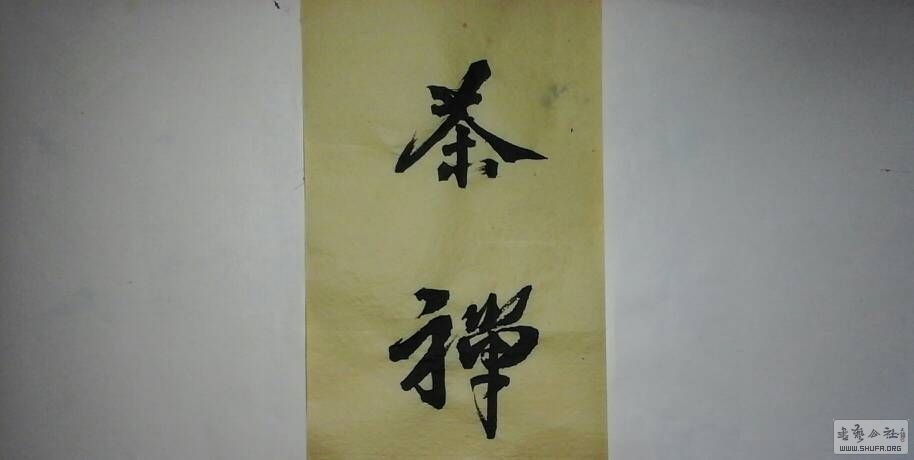 茶
禪
书艺公社
WWW.SHUFA.ORG